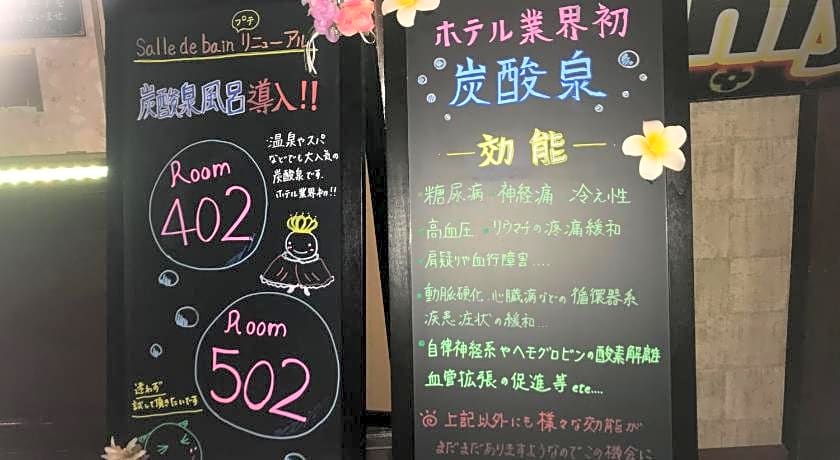 プチ
Salle de bain リニューアル
炭酸泉風呂導入!!
Room
402
温泉やスパ
などでも大人気の
炭酸泉です.
ホテル業界初!!
Room
502
迷わず
試して頂きたいです
ホテル業界初
炭酸泉
ー効能ー
・糖尿病 神経痛 冷え性
・高血圧 ・リウマチの疼痛緩和
・肩凝りや血行障害....
・動脈硬化.心臓病などの循環器系
疾患症状の緩和...
・自律神経系やヘモグロビンの酸素解離
血管拡張の促進等etc....
上記以外にも様々な効能が
まだまだありますようなのでこの機会に